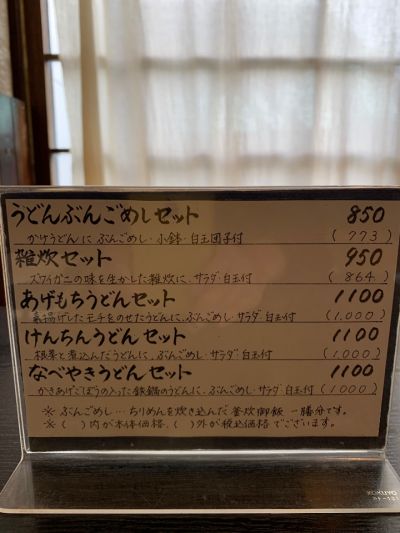 うどんぶんごめしセット 850
かけうどんに ぶんごめし・小鉢・白玉団子付 (773)
雑炊セット 950
ズワイガニの味を生かした雑炊に、サラダ・白玉付 (864)
あげもちうどんセット 1100
素揚げしたモチをのせたうどんに、ぶんごめし・サラダ・白玉付 (1,000)
けんちんうどんセット 1100
根菜と煮込んだうどんに、ぶんごめし・サラダ・白玉付 (1,000)
なべやきうどんセット 1100
かきあげごぼうの入った鉄鍋のうどんに、ぶんごめし・サラダ・白玉付 (1000)
※ ぶんごめし…ちりめんを炊き込んだ釜炊御飯 一膳分です。
※( )内が本体価格、( )外が税込価格でございます。